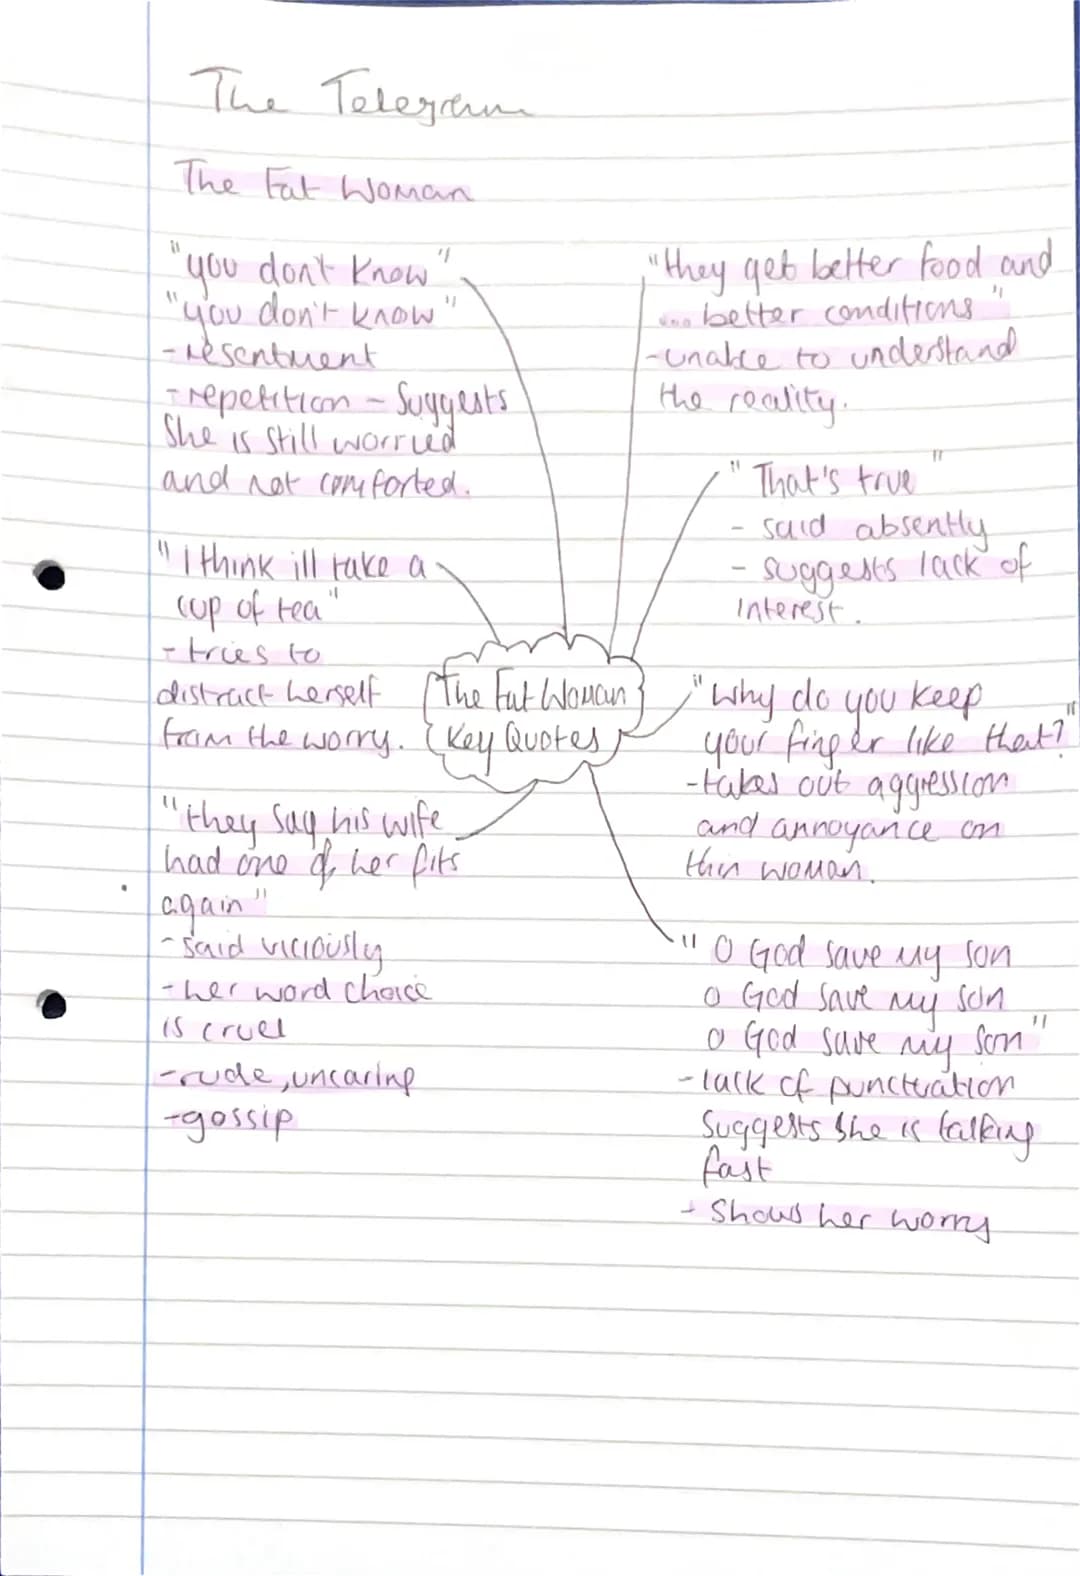 The Telegram
The Fat Woman
"you don't know"
"you don't know"
- resentment
- repetition - Suggests
She is still worried
and not comforted.
"I think ill take a
cup of tea"
- tries to
distract herself
from the worry.
"they say his wife
had one of her fits
again"
- said viciously
- her word choice
is cruel
- rude, uncaring
- gossip
The Fat Woman
Key Quotes
"they get better food and
... better conditions"
- unable to understand
the reality.
"That's true"
- said absently
- suggests lack of
interest.
"Why do you keep
your finger like that?"
- takes out aggression
and annoyance on
thin woman.
"O God save my son
O God save my son
O God save my son"
- lack of punctuation
Suggests she is talking
fast
- Shows her worry